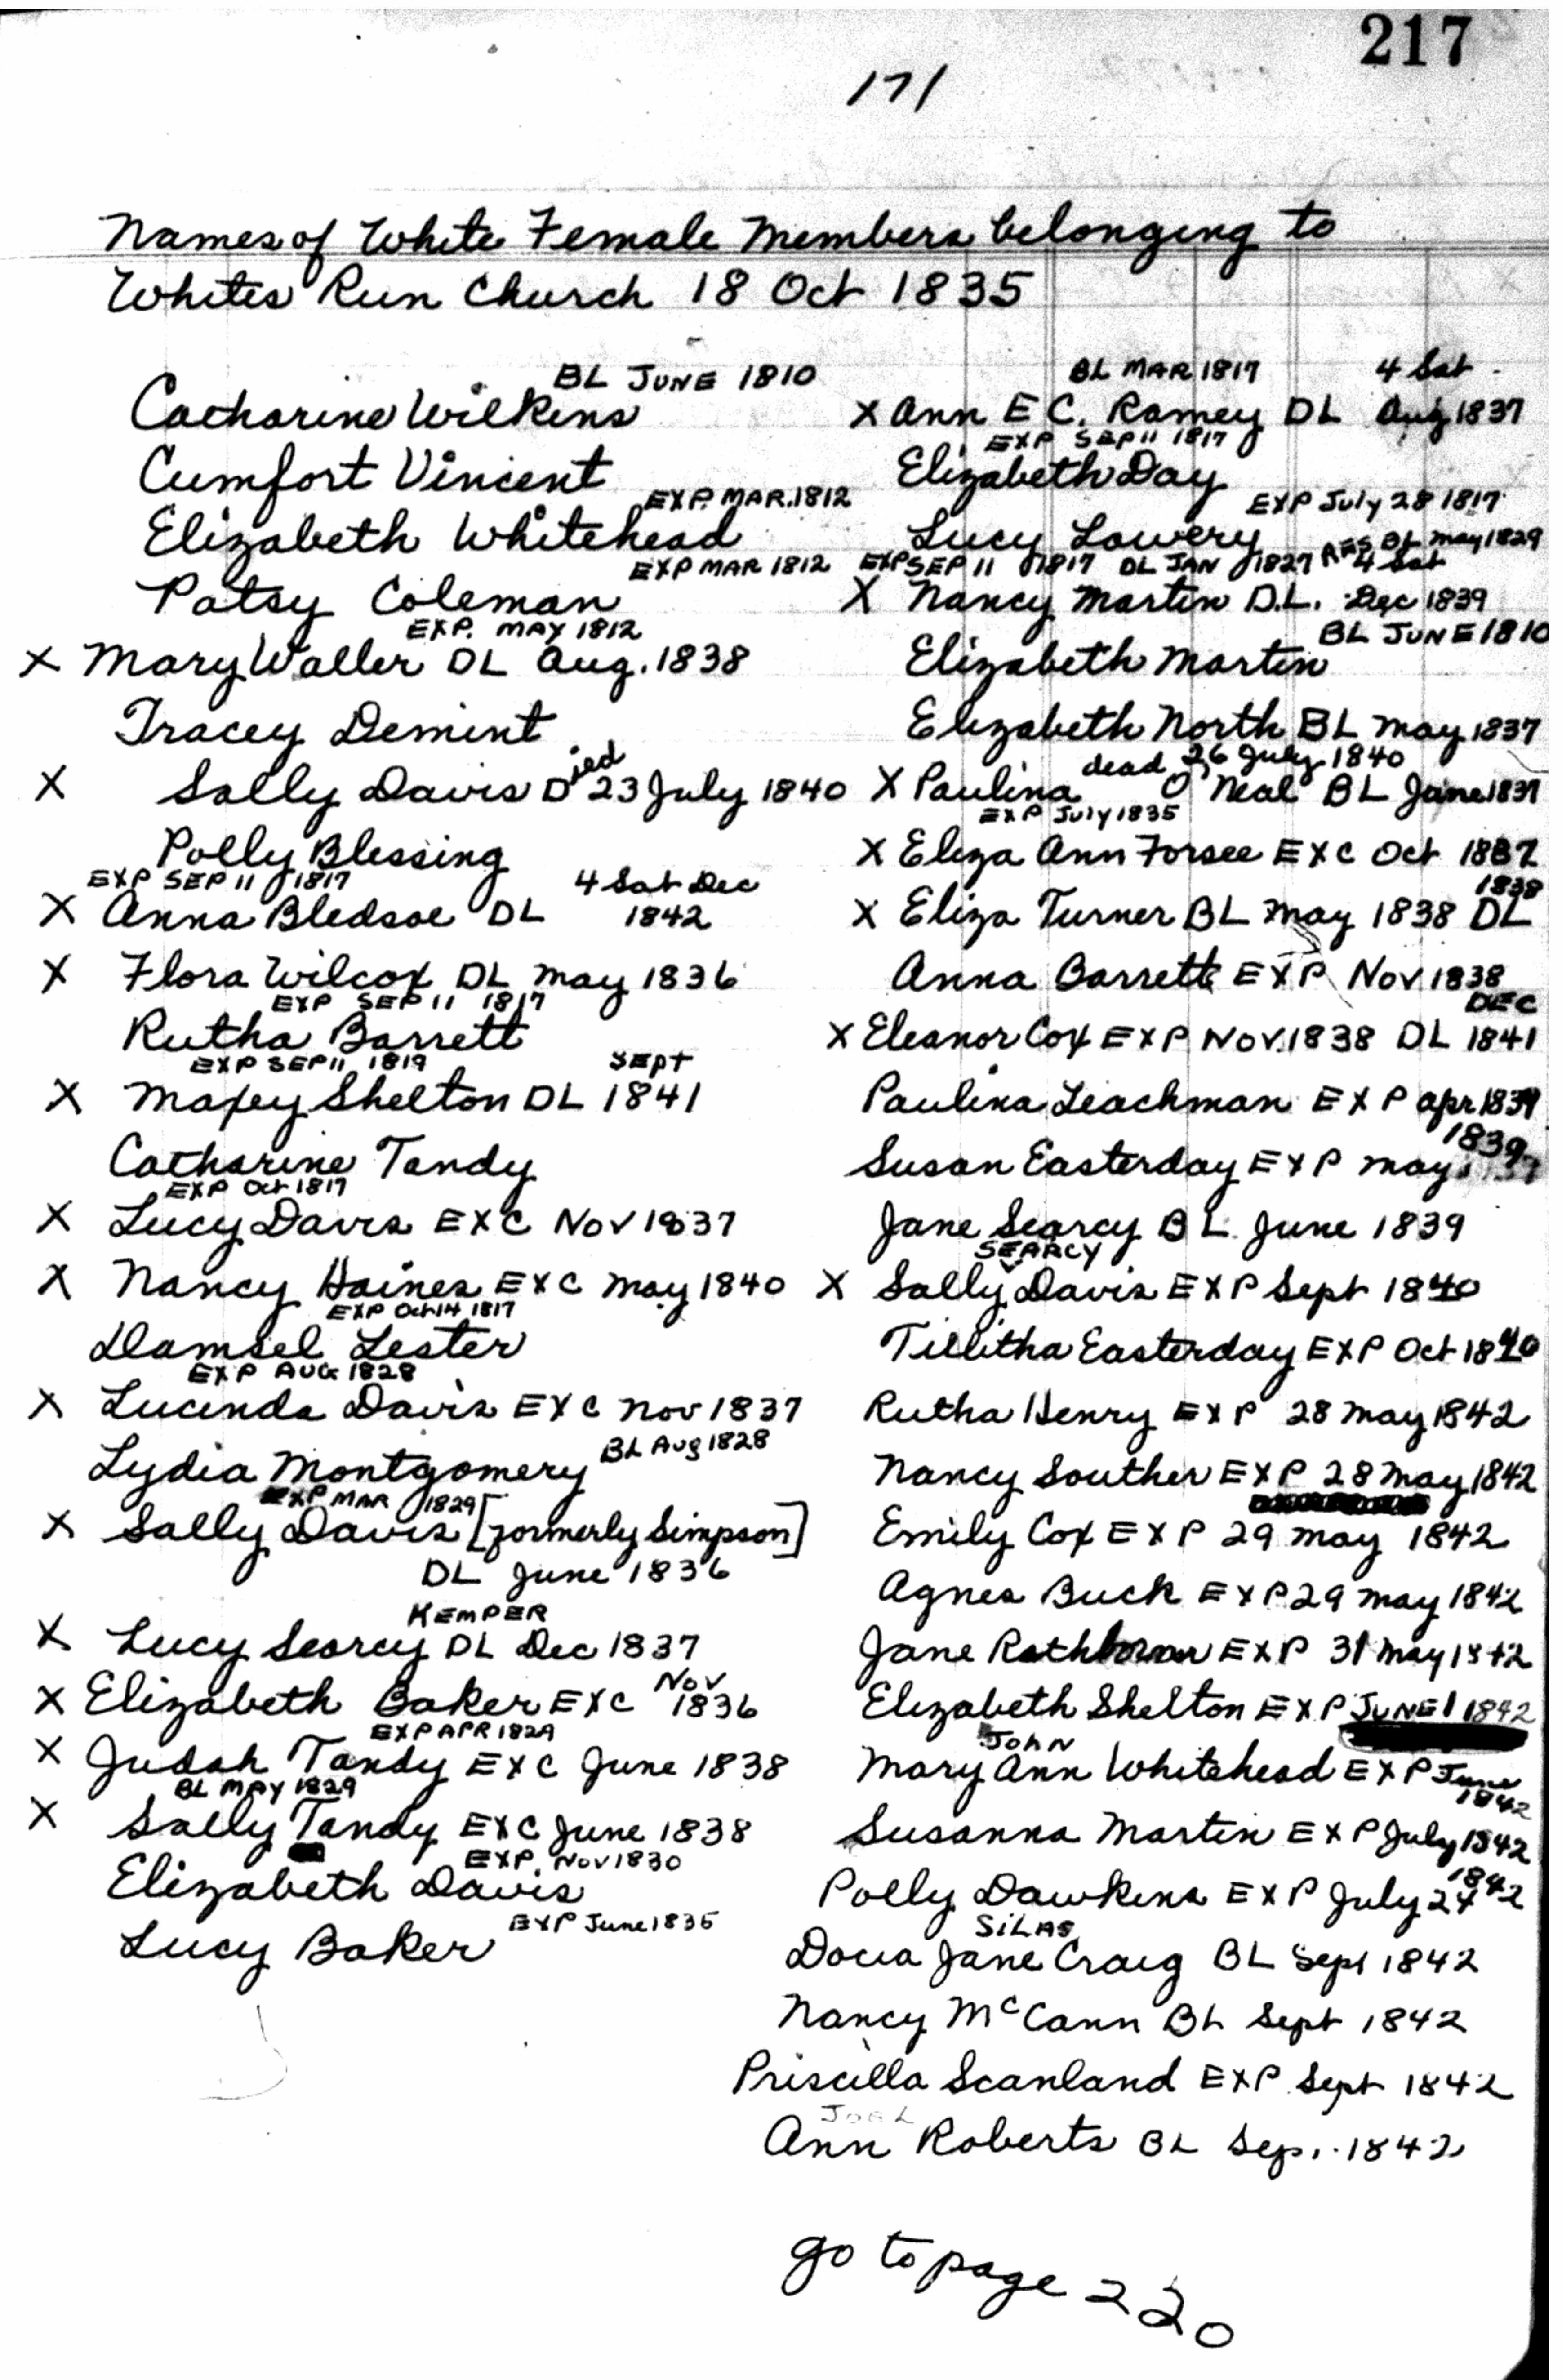 217
171
Names of White Female Members belonging to
Whites Run Church 18 Oct 1835
BL JUNE 1810
Catharine Wilkins
Cumfort Vincent
EXP. MAR. 1812
Elizabeth Whitehead
EXP MAR 1812
Patsy Coleman
EXP. MAY 1812
X Mary Waller DL Aug. 1838
Tracey Demint
X Sally Davis Died 23 July 1840
Polly Blessing
EXP SEP 11 1817 4 Sat Dec
X Anna Bledsoe DL 1842
X Flora Wilcox DL May 1836
EXP SEP 11 1817
Rutha Barrett
EXP SEP 11 1819 Sept
X Maxey Shelton DL 1841
Catharine Tandy
EXP Oct 1817
X Lucy Davis EXC Nov 1837
X Nancy Haines EXC May 1840
EXP Oct 14 1817
Damsel Lester
EXP AUG 1828
X Lucinda Davis EXC Nov 1837
BL Aug 1828
Lydia Montgomery
EXP MAR 1829
X Sally Davis [formerly Simpson]
DL June 1836
KEMPER
X Lucy Searcy DL Dec 1837
Nov
X Elizabeth Baker EXC 1836
EXP APR 1829
X Judah Tandy EXC June 1838
BL MAY 1829
X Sally Tandy EXC June 1838
EXP. Nov 1830
Elizabeth Davis
EXP June 1835
Lucy Baker
BL MAR 1817 4 Sat
X Ann E C. Ramey DL Aug 1837
EXP SEP 11 1817
Elizabeth Day
EXP July 28 1817
Lucy Lowery
EXP SEP 11 1817 DL JAN 1827 RES BL May 1829
4 Sat
X Nancy Martin D.L. Dec 1839
BL JUNE 1810
Elizabeth Martin
Elizabeth North BL May 1837
dead 26 July 1840
X Paulina O'Neal BL June 1837
EXP July 1835
X Eliza Ann Forsee EXC Oct 1837
1838
X Eliza Turner BL May 1838 DL
Anna Barrett EXP Nov 1838
DEC
X Eleanor Cox EXP Nov. 1838 DL 1841
Paulina Leachman EXP Apr 1839
1839
Susan Easterday EXP May
Jane Searcy BL June 1839
SEARCY
X Sally Davis EXP Sept 1840
Tillitha Easterday EXP Oct 1840
Rutha Henry EXP 28 May 1842
Nancy Souther EXP 28 May 1842
Emily Cox EXP 29 May 1842
Agnes Buck EXP 29 May 1842
Jane EXP 31 May 1842
Elizabeth Shelton EXP JUNE 1 1842
JOHN
Mary Ann Whitehead EXP June
1842
Susanna Martin EXP July 1842
1842
Polly Dawkins EXP July 24
SILAS
Docia Jane Craig BL Sept 1842
Nancy McCann BL Sept 1842
Priscilla Scanland EXP Sept 1842
JOEL
Ann Roberts BL Sep. 1842
go to page 220